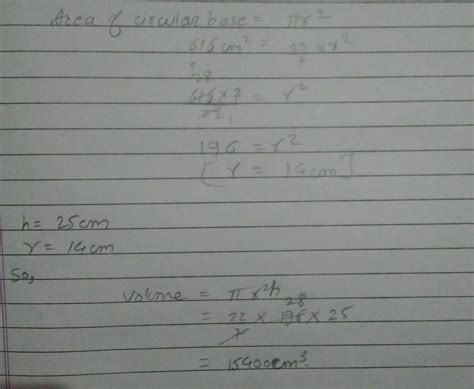 Area of circular base = πr²
616 cm² = 22/7 × r²
28
616 × 7 / 22 = r²
196 = r²
[r = 14cm]
h = 25cm
r = 14cm
So,
Volume = πr²h
28
= 22/7 × 196 × 25
= 15400cm³.